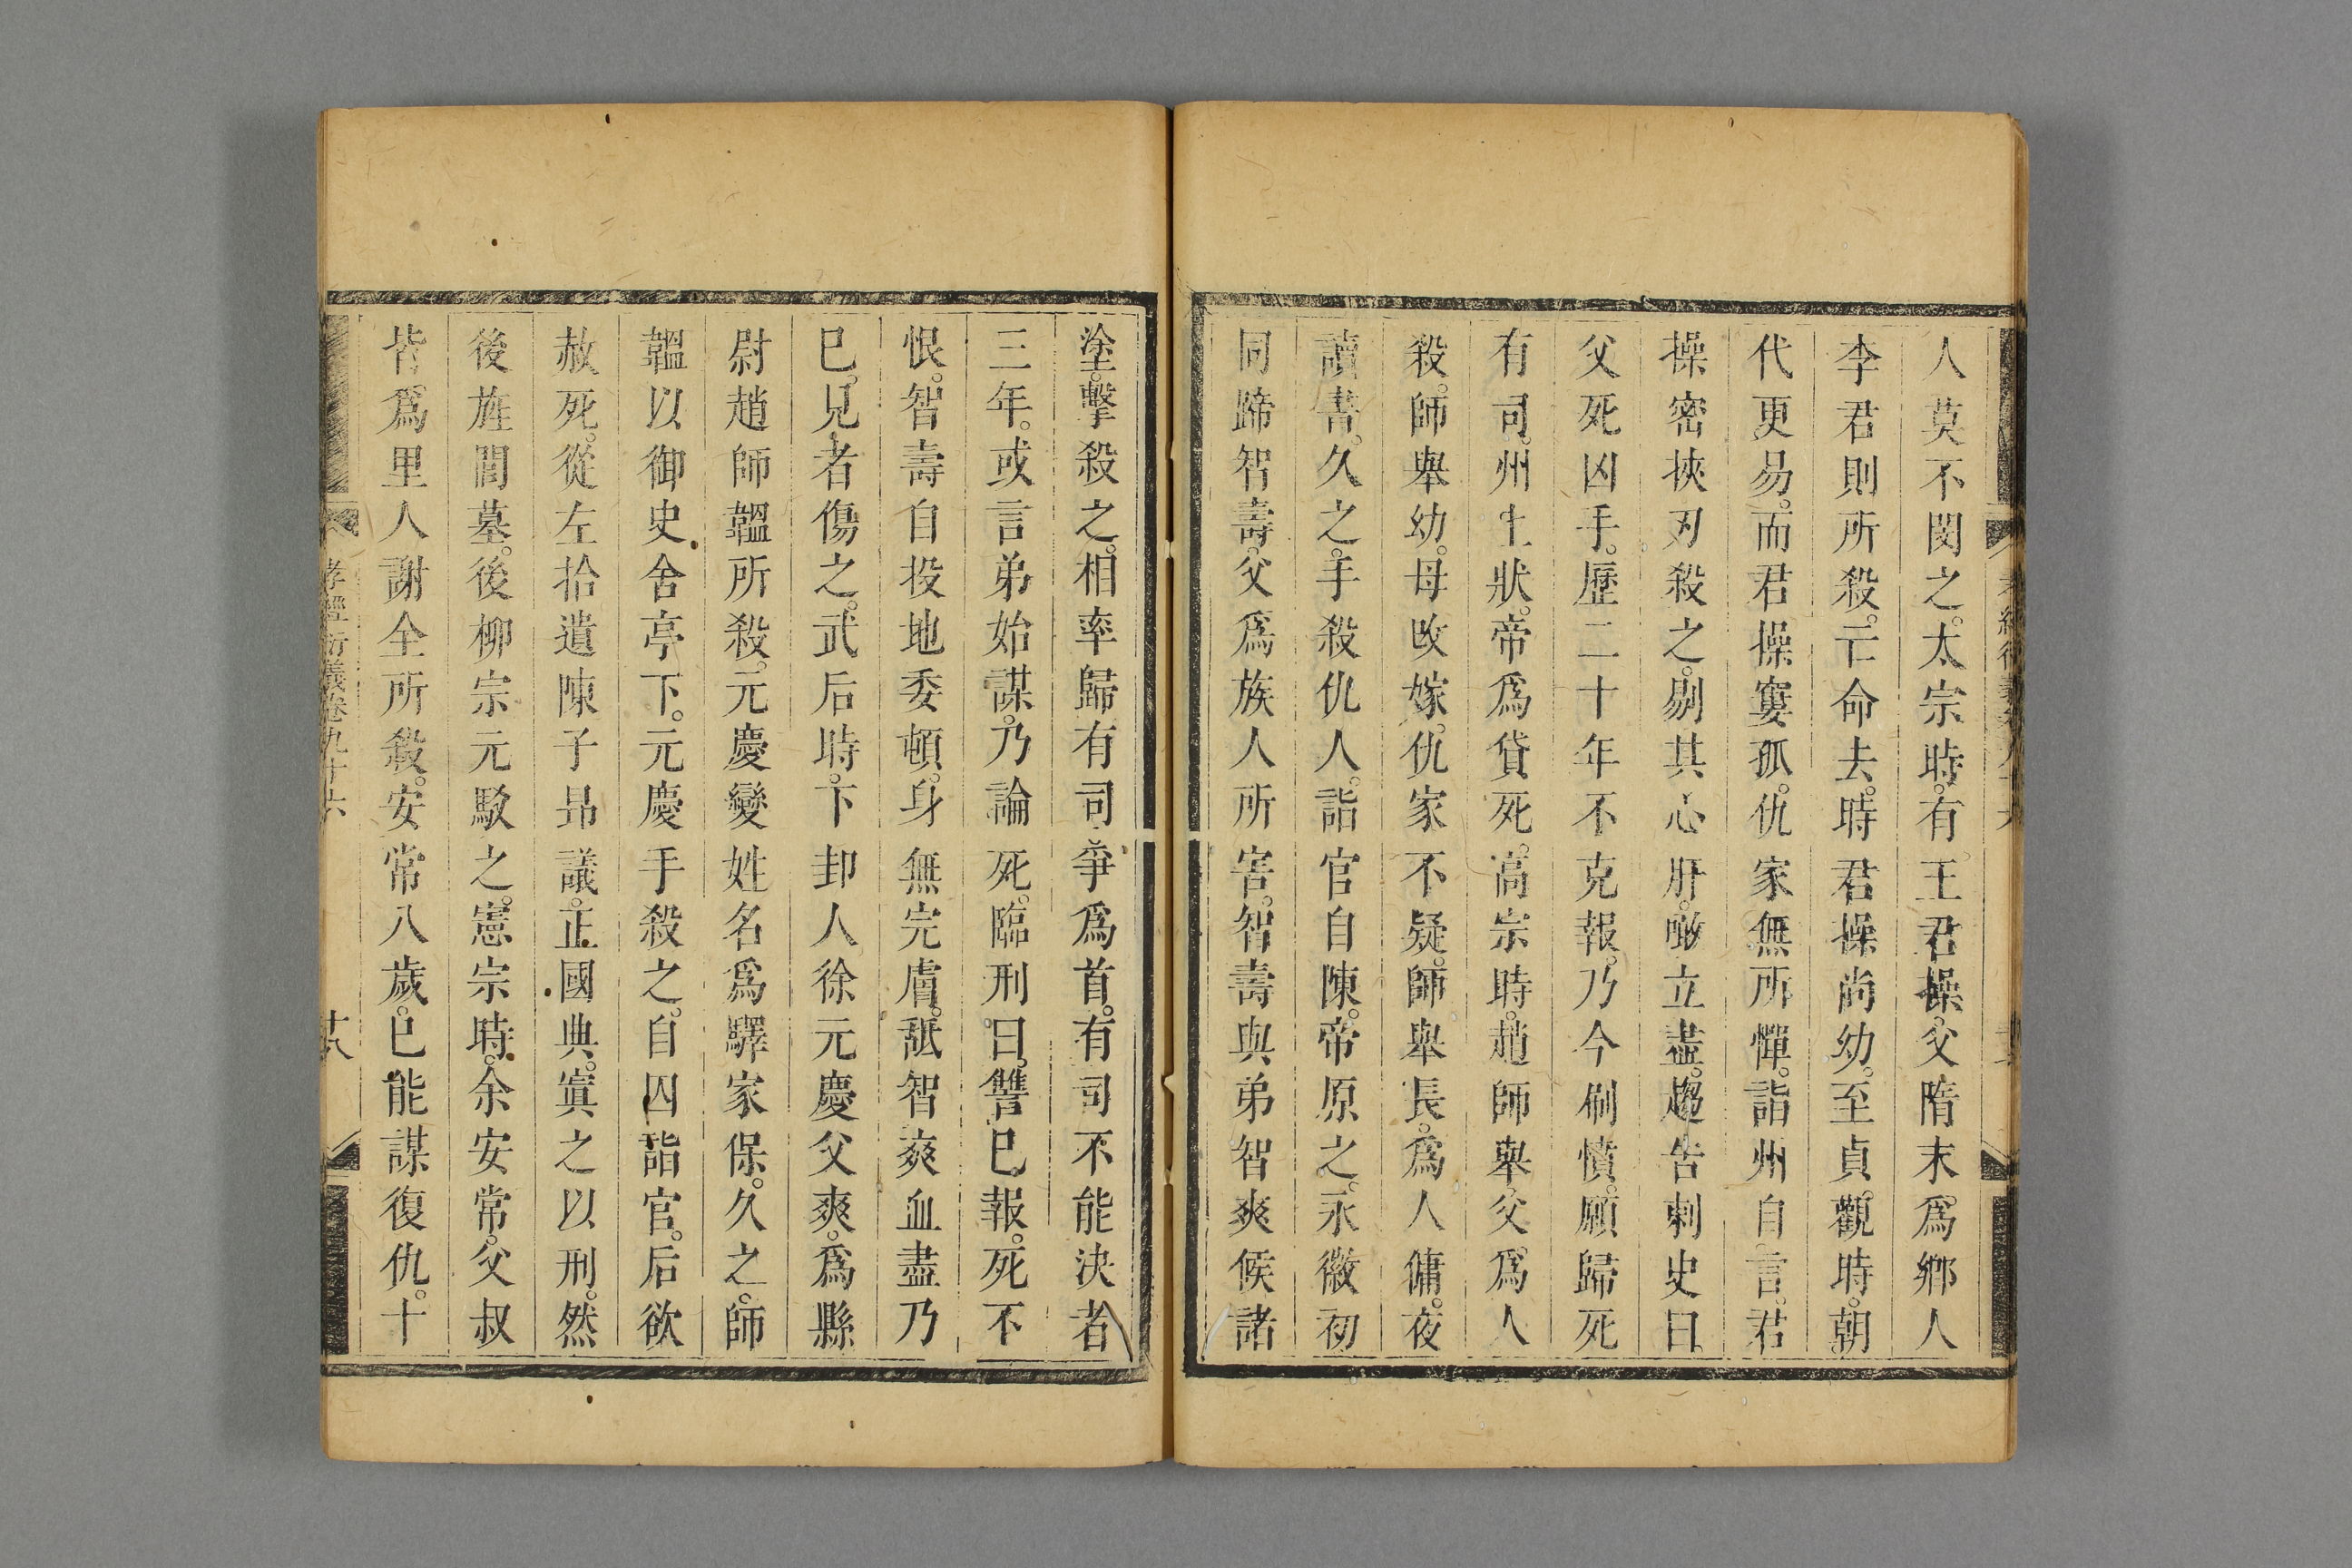 人莫不閔之。太宗時。有王君操。父隋末。爲鄉人
李君則所殺。亡命去。時君操尚幼。至貞觀時。朝
代更易。而君操寠孤。仇家無所憚。詣州自言。君
操密挾刃殺之。剔其心肝。噉立盡。趨告刺史曰
父死凶手。歷二十年不克報。乃今刷憤。願歸死
有司。州上狀。帝爲貸死。高宗時。趙師舉父。爲人
殺。師舉幼。母改嫁。仇家不疑。師舉長。爲人傭。夜
讀書。久之。手殺仇人。詣官自陳。帝原之。永徽初
同蹄智壽。父爲族人所害。智壽與弟智爽候諸
塗。擊殺之。相率歸有司爭爲首。有司不能決者
三年。或言弟始謀。乃論死。臨刑曰。讐已報。死不
恨。智壽自投地委頓。身無完膚。舐智爽血盡乃
已。見者傷之。武后時。下邽人徐元慶父爽。爲縣
尉趙師韞所殺。元慶變姓名爲驛家保。久之。師
韞以御史舍亭下。元慶手殺之。自囚詣官。后欲
赦死。從左拾遺陳子昂議。正國典。寘之以刑。然
後旌閭墓。後柳宗元駁之。憲宗時。余安常。父叔
皆爲里人謝全所殺。安常八歲。已能謀復仇。十
孝經衍義卷九十六
十八